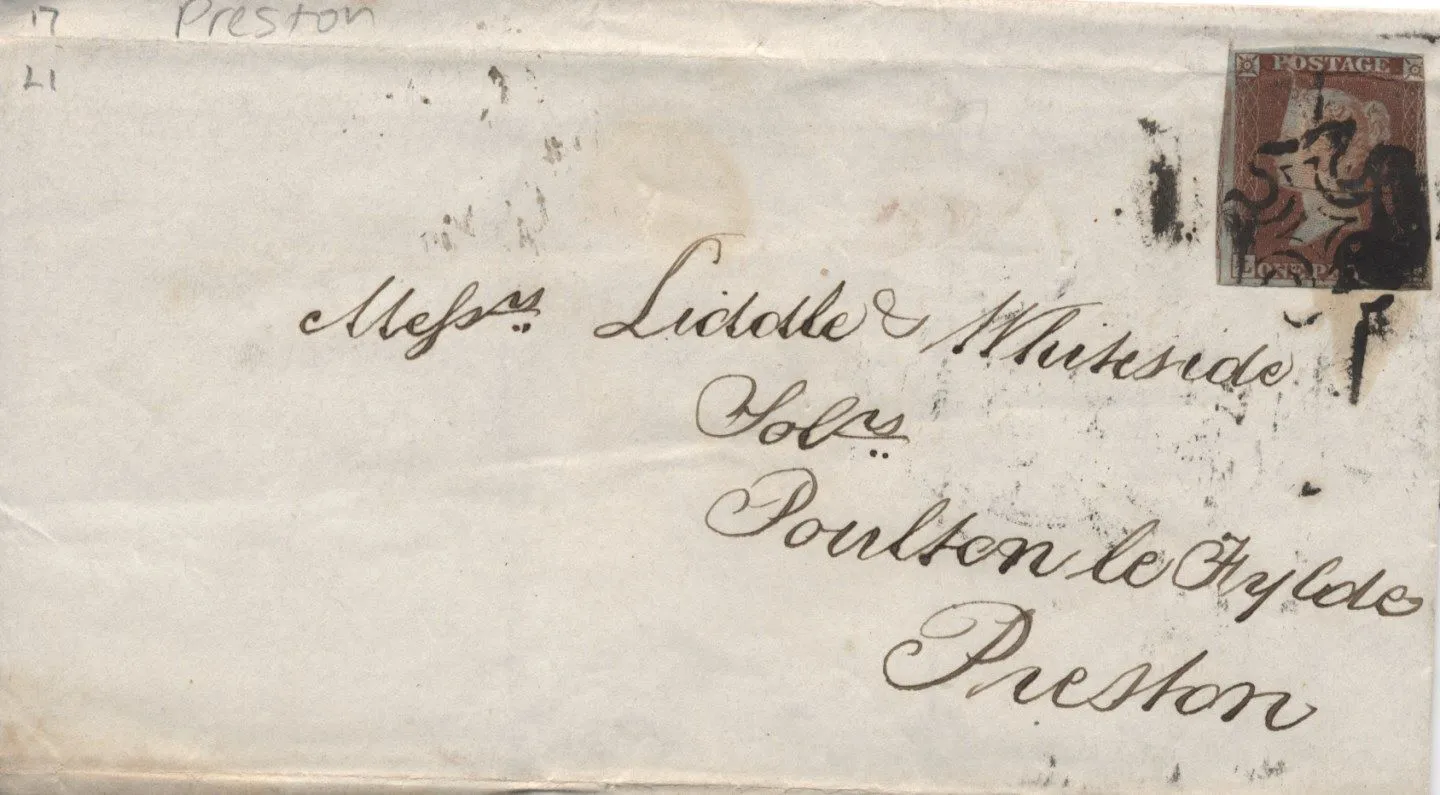 17 Preston
L1
POSTAGE
L ONE P
Messrs Liddle & Whiteside
Solrs
Poulton le Fylde
Preston